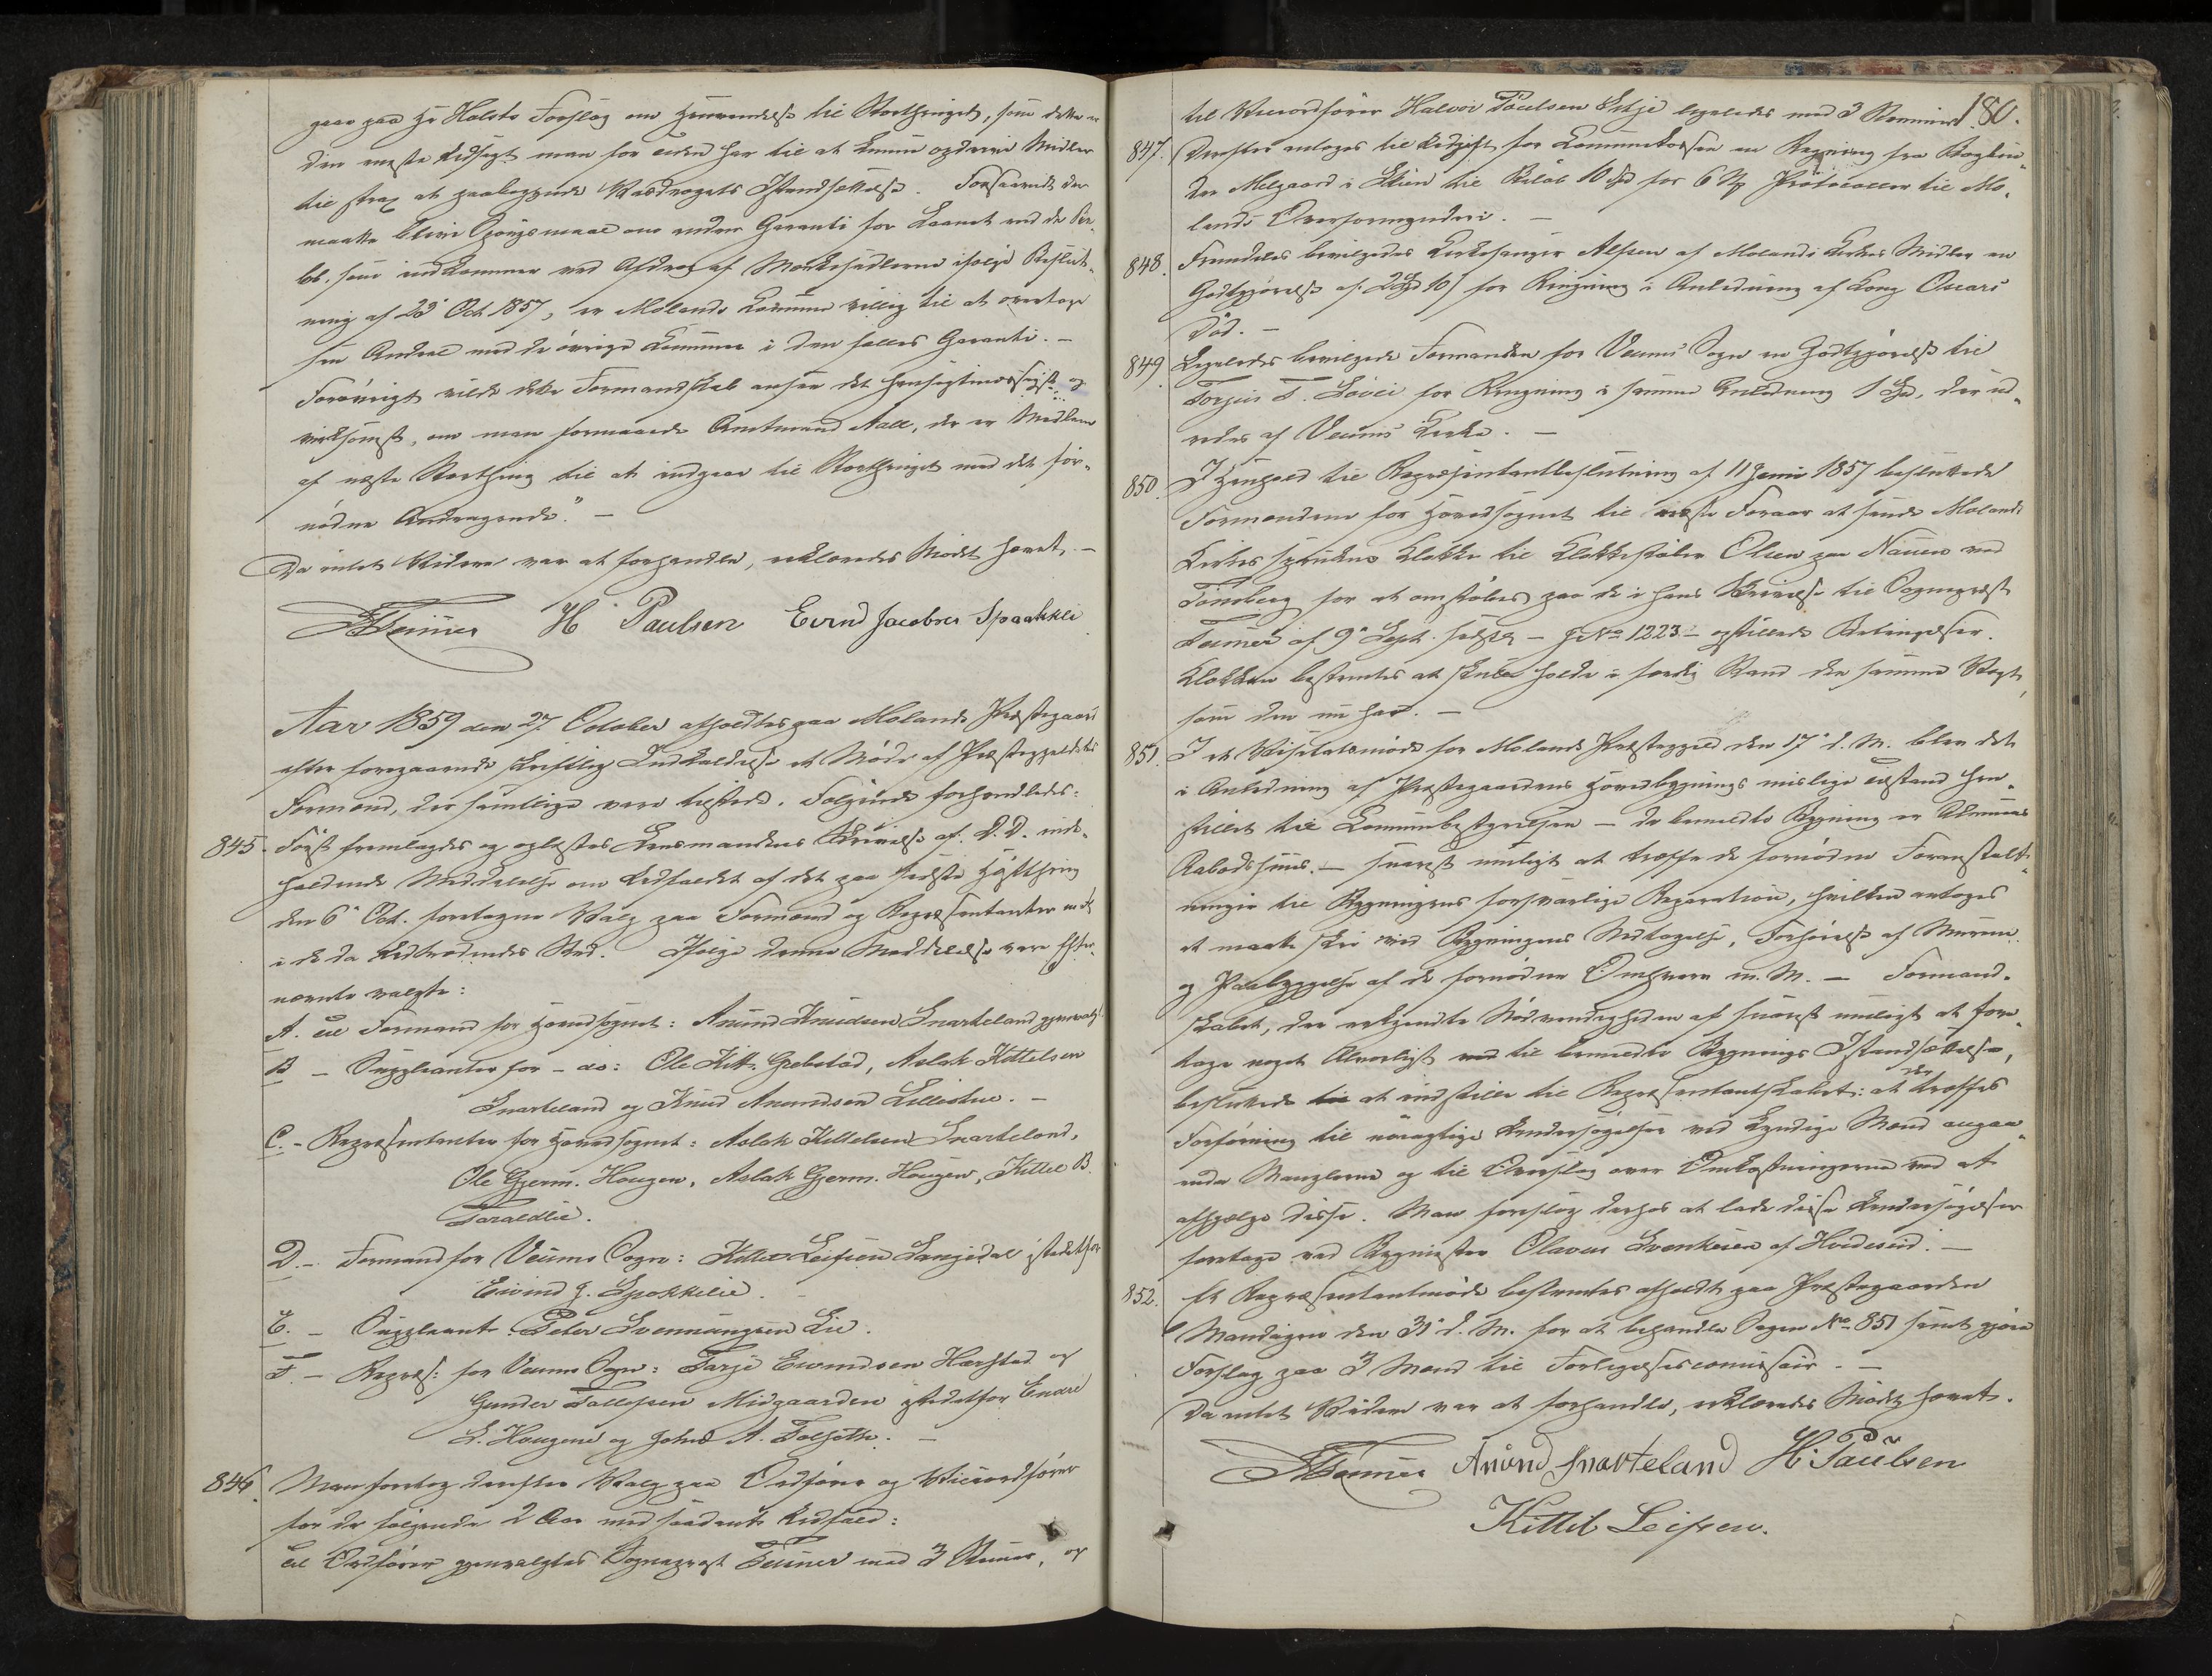 gaae paa Hr Holsts Forslag om Henvendelse til Storthinget, som dette er
den eneste Udsigt man for Tiden har til at kunne opdrive Midler
til strax at paabegynde Vasdragets Istandsættelse. Forsaavidt der
maatte blive Spørgsmaal om anden Garanti for Laanet end de
bl. som indkommer ved Afdrag af Mærkesedlerne ifølge Beslut-
ning af 23de Oct 1857, er Molands Kommune villig til at overtage
sin Andeel med de øvrige Kommuner i den fælles Garanti. —
Forøvrigt vilde dette Formandskab ansee det hensigtsmæssigst og
virksomst, om man formaaede Amtmand Aall, der er Medlem
af næste Storthing til at indgaae til Storthinget med det for-
nødne Andragende." —
Da intet Videre var at forhandle, erklæredes Mødet hævet. —
H Paulsen Eivind Jacobsen Spaakkli
Aar 1859 den 27 October afholdtes paa Molands Præstegaard
efter foregaaende skriftlig Indkaldelse et Møde af Præstegjeldets
Formænd, der samtlige vare tilstede. Følgende forhandledes:
845. Først fremlagdes og oplæstes Lensmandens Skrivelse af D. D. inde-
holdende Meddelelse om Udfaldet af det paa sidste Høstthing
den 6te Oct. foretagne Valg paa Formænd og Repræsentanter
i de da Udtrædendes Sted. Ifølge denne Meddelelse vare Efter-
nævnte valgte:
A. Til Formand for Hovedsognet: Anund Knudsen Snarteland gjenvalgt
B — Suppleanter for — do: Ole Kitt. Grobstad, Aslak Kittelsen
Snarteland og Knud Anundsen Lillestue. —
C. — Repræsentanter for Hovedsognet: Aslak Kittelsen Snarteland,
Ole Gjerm. Hougen, Aslak Gjerm. Hougen, Kittil B.
Taraldlie.
D. — Formand for Veums Sogn: Kittil Leifsen Langedal istedetfor
Eivind J. Spokkelie.
E. — Suppleant: Peter Svennungsen Lie.
F. — Repræs: for Veums Sogn: Tarje Evendsen Hærstad og
Gunder Tallefsen Midgaarden istedetfor Einar
L. Hougene og John A. Felsæth. —
846. Man foretog derefter Valg paa Ordfører og Viceordfører
for de følgende 2 Aar med saadant Udfald:
Til Ordfører gjenvalgtes Sognepræst Teimer med 3 Stemmer, og
180.
til Viceordfører Halvor Paulsen Eskje ligeledes med 3 Stemmer.
847. Derefter antoges til Udgift for Communekassen en Regning fra Bogbin-
der Melgaard i Skien til Beløb 10 Spd for 6 St. Protocoller til Mo-
lands Overformynderi. —
848. Fremdeles bevilgedes Kirkesanger Alfsen af Molands Kirkes Midler en
Godtgjørelse af 2 Spd 10 s for Ringning i Anledning af Kong Oscars
Død. —
849. Ligeledes bevilgede Formanden for Veums Sogn en Godtgjørelse til
Torjus T. Løvei for Ringning i samme Anledning 1 Spd, der ud-
redes af Veums Kirke. —
850. I Henhold til Repræsentantbeslutning af 11 Juni 1857 besluttede
Formændene for Hovedsognet til næste Foraar at sende Molands
Kirkes sprukne Klokke til Klokkestøber Olsen paa Nauen ved
Tønsberg for at omstøbes paa de i hans Skrivelse til Sognepræst
Teimer af 9de Sept. — J. No 1223 — opstillede Betingelser.
Klokken bestemtes at skulle holde i færdig Stand den samme Vægt,
som den nu har. —
851. I et Visitatsmøde for Molands Præstegjeld den 17de d. M. blev det
i Anledning af Præstegaardens Hovedbygnings mislige Tilstand hen-
stillet til Kommunebestyrelsen — da bemeldte Bygning er Almues
Aabodshuus. — snarest muligt at træffe de fornødne Foranstalt-
ninger til Bygningens forsvarlige Reparation, hvilken antoges
at maatte skee ved Bygningens Nedtagelse, Forhøielse af Murene
og Paabyggelse af de fornødne Omhvarv m. M. — Formand-
skabet, der erkjendte Nødvendigheden af snarest muligt at fore-
tage noget Alvorligt til bemeldte Bygnings Istandsættelse,
besluttede at indstille til Repræsentantskabet: at der træffes
Forføining til nøiagtige Undersøgelser ved kyndige Mænd angaa-
ende Manglerne og til Overslag over Omkostningerne ved at
afhjælpe disse. Man foreslog derhos at lade disse Undersøgelser
foretage ved Bygmester Olavus Svenkesen af Hvideseid. —
852. Et Repræsentantmøde bestemtes afholdt paa Præstegaarden
Mandagen den 31te d. M. for at behandle Sagen No 851 samt gjøre
Forslag paa 3 Mænd til Forligelsescommissair. —
Da intet Videre var at forhandle, erklæredes Mødet hævet.
Anund Snarteland H. Paulsen
Kittil Leifsen.